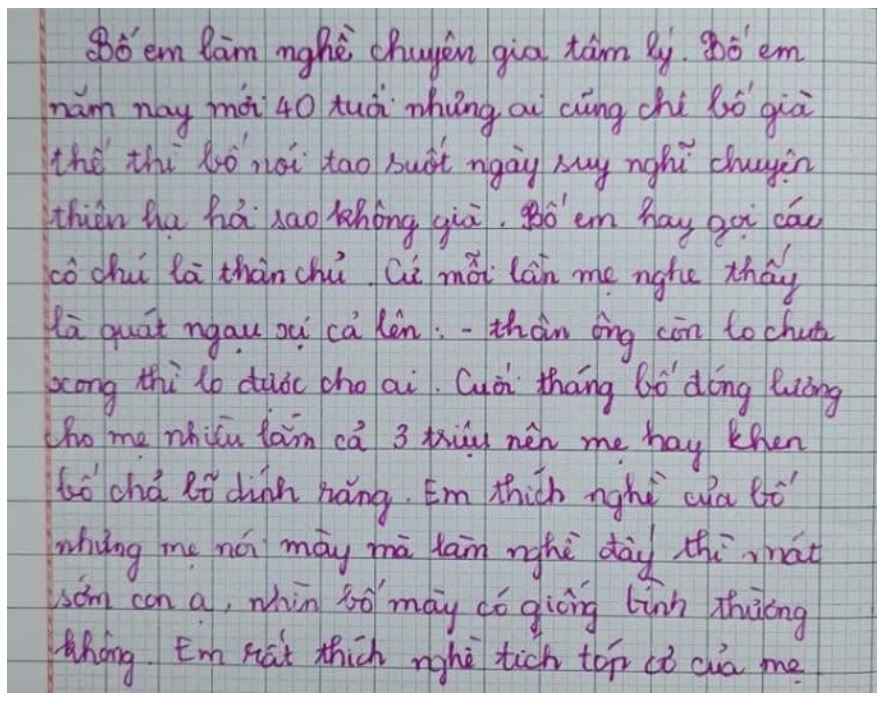 Bố em làm nghề chuyên gia tâm lý. Bố em
năm nay mới 40 tuổi nhưng ai cũng chê bố già
thế thì bố nói tao suốt ngày suy nghĩ chuyện
thiên hạ hỏi sao không già. Bố em hay gọi các
cô chú là thân chủ. Cứ mỗi lần mẹ nghe thấy
là quát ngau sự cả lên: - thân ông còn lo chưa
xong thì lo được cho ai. Cuối tháng bố đóng lương
cho mẹ nhiều lắm cả 3 triệu nên mẹ hay khen
bố chả bõ dính răng. Em thích nghề của bố
nhưng mẹ nói mày mà làm nghề đấy thì mát
sớm con ạ, nhìn bố mày có giống bình thường
không. Em rất thích nghề tích tóp cơ của mẹ